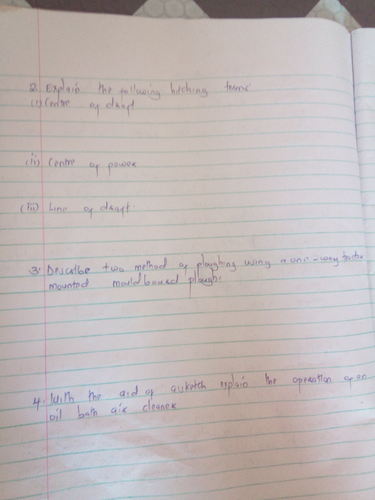 2. Explain the following hitching terms
(i) Centre of draft
(ii) Centre of power
(iii) Line of draft
3. Describe two method of ploughing using a one-way tractor
mounted mouldboard plough.
4. With the aid of a sketch explain the operation of an
oil bath air cleaner